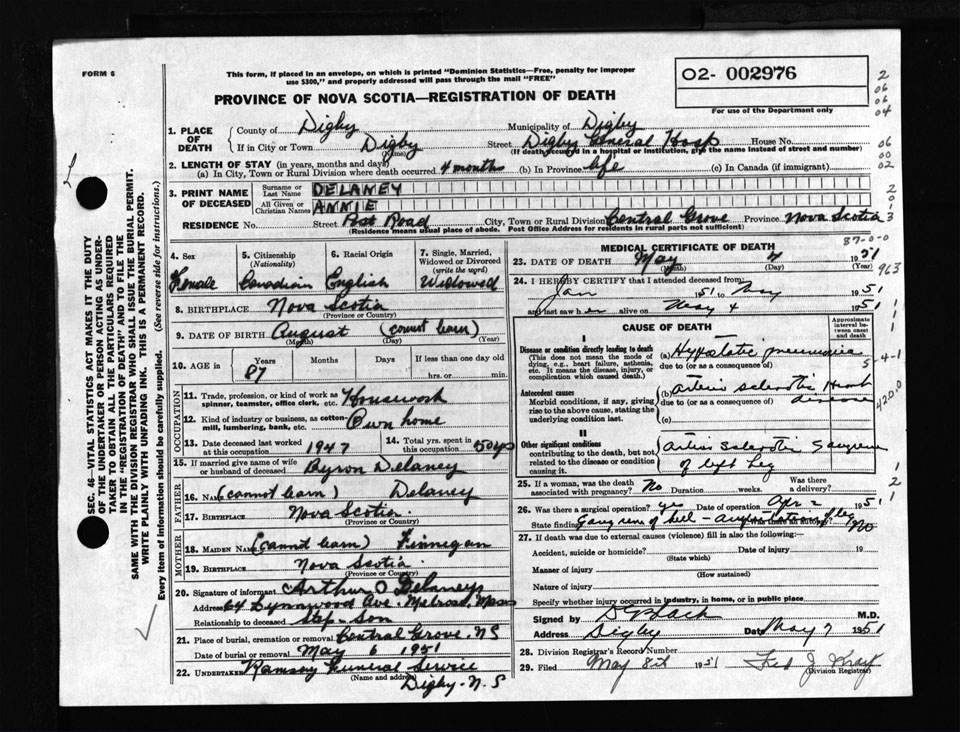 FORM 6
This form, if placed in an envelope, on which is printed "Dominion Statistics—Free, penalty for improper
use $300," and properly addressed will pass through the mail "FREE"
O2- 002976
For use of the Department only
PROVINCE OF NOVA SCOTIA—REGISTRATION OF DEATH
1. PLACE OF DEATH
County of Digby Municipality of Digby
If in City or Town Digby (Name) Street Digby General Hosp House No.
(If death occurred in a hospital or institution, give the name instead of street and number)
2. LENGTH OF STAY (in years, months and days)
(a) In City, Town or Rural Division where death occurred 4 months (b) In Province life (c) In Canada (if immigrant)
3. PRINT NAME OF DECEASED
Surname or Last Name DELANEY
All Given or Christian Names ANNIE
RESIDENCE No. Street Post Road City, Town or Rural Division Central Grove Province Nova Scotia
(Residence means usual place of abode. Post Office Address for residents in rural parts not sufficient)
4. Sex Female
5. Citizenship (Nationality) Canadian
6. Racial Origin English
7. Single, Married, Widowed or Divorced (write the word) Widowed
8. BIRTHPLACE Nova Scotia
(Province or Country)
9. DATE OF BIRTH August (cannot learn)
(Month) (Day) (Year)
10. AGE in Years Months Days If less than one day old
87 hrs. or min.
OCCUPATION
11. Trade, profession, or kind of work as spinner, teamster, office clerk, etc. Housework
12. Kind of industry or business, as cotton-mill, lumbering, bank, etc. Own home
13. Date deceased last worked at this occupation 1947
14. Total yrs. spent in this occupation 50 yrs
15. If married give name of wife or husband of deceased Byron Delaney
FATHER
16. NAME (cannot learn) Delaney
17. BIRTHPLACE Nova Scotia.
(Province or Country)
MOTHER
18. MAIDEN NAME (cannot learn) Finnegan
19. BIRTHPLACE Nova Scotia
(Province or Country)
20. Signature of informant Arthur O Delaney
Address 64 Lynnwood Ave. Melrose, Mass
Relationship to deceased Step-Son
21. Place of burial, cremation or removal Central Grove, NS
Date of burial or removal May 6 1951
22. UNDERTAKER Ramsay Funeral Service
(Name and address)
Digby-N.S
MEDICAL CERTIFICATE OF DEATH
23. DATE OF DEATH May 4 1951
(Month) (Day) (Year)
24. I HEREBY CERTIFY that I attended deceased from:
Jan 1951 to May 1951
and last saw her alive on May 4 1951
CAUSE OF DEATH
Approximate interval between onset and death
I
Disease or condition directly leading to death
(This does not mean the mode of dying, e.g., heart failure, asthenia, etc. It means the disease, injury, or complication which caused death.)
(a) Hypostatic pneumonia
due to (or as a consequence of)
Antecedent causes
Morbid conditions, if any, giving rise to the above cause, stating the underlying condition last.
(b) arterio sclerotic Heart disease
due to (or as a consequence of)
II
Other significant conditions
contributing to the death, but not related to the disease or condition causing it.
arterio sclerotic Gangrene
of left leg
25. If a woman, was the death associated with pregnancy? No Duration weeks. Was there a delivery?
26. Was there a surgical operation? yes Date of operation Apr 1951
State findings Gangrene of heel - amputation of leg Was there an autopsy? No
27. If death was due to external causes (violence) fill in also the following:—
Accident, suicide or homicide? Date of injury 19
(State which)
Manner of injury
(How sustained)
Nature of injury
Specify whether injury occurred in industry, in home, or in public place
Signed by D Black M.D.
Address Digby Date May 7 1951
28. Division Registrar's Record Number
29. Filed May 8th 1951
(Division Registrar)
SEC. 46—VITAL STATISTICS ACT MAKES IT THE DUTY
OF THE UNDERTAKER OR PERSON ACTING AS UNDER-
TAKER TO OBTAIN ALL THE PARTICULARS REQUIRED
IN THE "REGISTRATION OF DEATH" AND TO FILE THE
SAME WITH THE DIVISION REGISTRAR WHO SHALL ISSUE THE BURIAL PERMIT.
WRITE PLAINLY WITH UNFADING INK. THIS IS A PERMANENT RECORD.
Every item of information should be carefully supplied. (See reverse side for instructions.)
2
06
06
04
06
00
02
2
0
1
3
87-0-0
963
5-4-1
4200